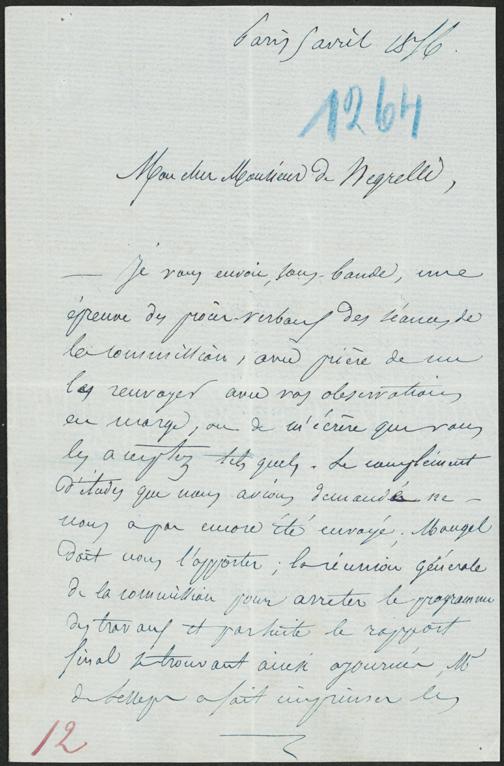 Paris 5 avril 1856.
1264
Mon cher Monsieur de Negrelli,
— Je vous envoie, sous bande, une
épreuve des procès-verbaux des séances de
la commission, avec prière de me
les renvoyer avec vos observations
en marge, ou de m'écrire que vous
les acceptez tels quels. Le complément
d'études que nous avions demandé ne
nous a pas encore été envoyé, Mougel
doit nous l'apporter; la réunion générale
de la commission pour arrêter le programme
des travaux et par suite le rapport
final se trouvant ainsi ajournée, Mr
de Lesseps a fait imprimer les
12